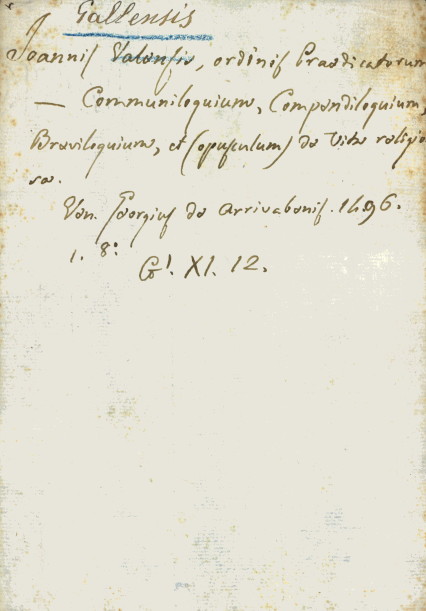 Gallensis
Joannis Valensis, ordinis Praedicatorum
— Communiloquium, Compendiloquium,
Breviloquium, et (opusculum) de Vita religio
sa.
Ven. Georgius de Arrivabenis. 1496.
1. 8:
G! XI. 12.